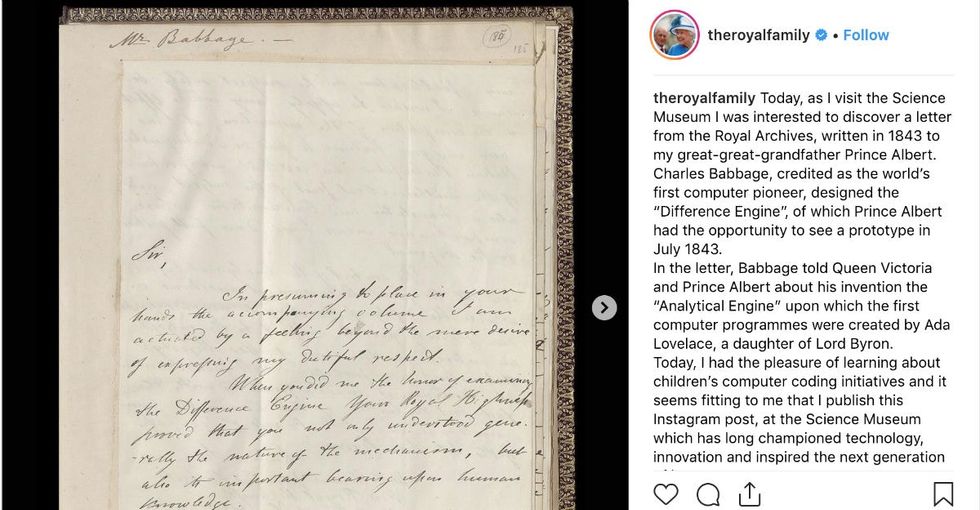 Mr Babbage. —
185
185
Sir,
In presuming to place in your
hands the accompanying volume I am
actuated by a feeling beyond the mere desire
of expressing my dutiful respect.
When you did me the honor of examining
the Difference Engine Your Royal Highness
proved that you not only understood gene-
-rally the nature of the mechanism, but
also its important bearing upon human
knowledge.
theroyalfamily • Follow
theroyalfamily Today, as I visit the Science
Museum I was interested to discover a letter
from the Royal Archives, written in 1843 to
my great-great-grandfather Prince Albert.
Charles Babbage, credited as the world’s
first computer pioneer, designed the
“Difference Engine”, of which Prince Albert
had the opportunity to see a prototype in
July 1843.
In the letter, Babbage told Queen Victoria
and Prince Albert about his invention the
“Analytical Engine” upon which the first
computer programmes were created by Ada
Lovelace, a daughter of Lord Byron.
Today, I had the pleasure of learning about
children’s computer coding initiatives and it
seems fitting to me that I publish this
Instagram post, at the Science Museum
which has long championed technology,
innovation and inspired the next generation